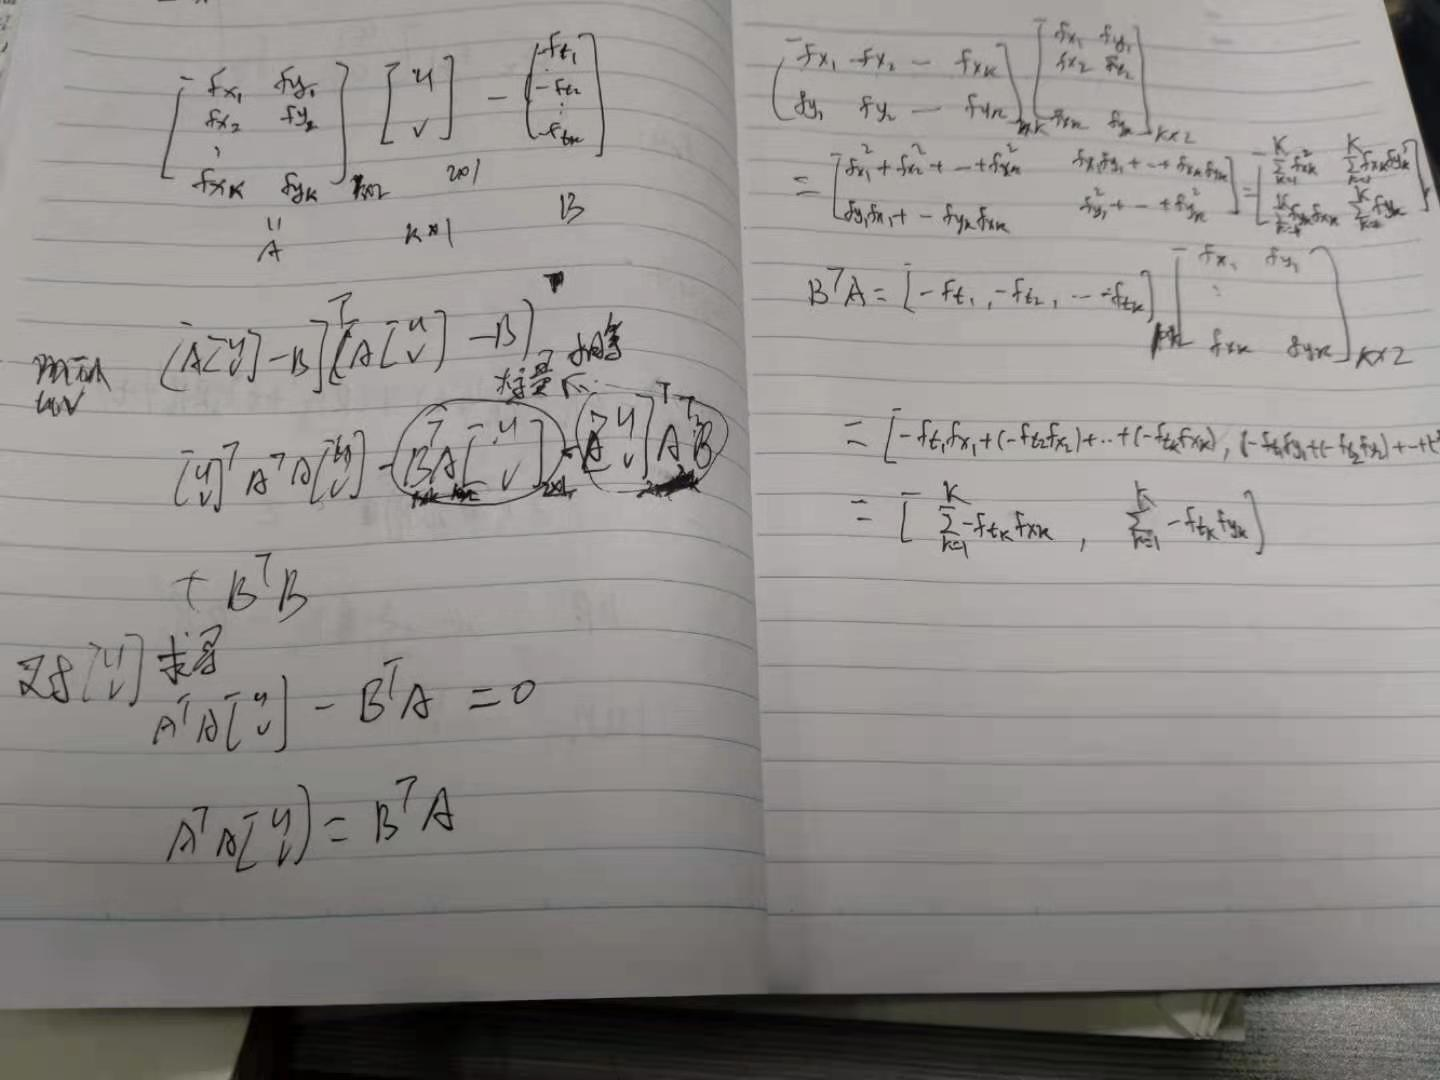 [fx₁ fy₁
fx₂ fy₂
⋮
fxₖ fyₖ]ₖₓ₂ [u
v] - [-ft₁
-ft₂
⋮
-ftₖ]
2×1
"
A
k×1
B
min
u,v
[A[u v] - B]ᵀ[A[u v] - B]
标量 相等
[u v]ᵀ AᵀA[u v] - BᵀA[u v] - [u v]ᵀAᵀB
+ BᵀB
对[u v] 求导
AᵀA[u v] - BᵀA = 0
AᵀA[u v] = BᵀA
[fx₁ fx₂ - fxₖ
fy₁ fy₂ - fyₖ] [fx₁ fy₁
fx₂ fy₂
fxₖ fyₖ]ₖₓ₂
= [fx₁² + fx₂² + -- + fxₖ² fx₁fy₁ + -- + fxₖfyₖ
fy₁fx₁ + - fyₖfxₖ fy₁² + -- + fyₖ²] = [∑ₖ₌₁ᴷ fxₖ² ∑ₖ₌₁ᴷ fxₖfyₖ
∑ₖ₌₁ᴷ fyₖfxₖ ∑ₖ₌₁ᴷ fyₖ]
BᵀA = [-ft₁, -ft₂, ... -ftₖ] [fx₁ fy₁
⋮
fxₖ fyₖ]K×2
= [-ft₁fx₁ + (-ft₂fx₂) + ... + (-ftₖfxₖ), (-ft₁fy₁ + (-ft₂fy₂) + -- +
= [∑ₖ₌₁ᴷ -ftₖfxₖ , ∑ₖ₌₁ᴷ -ftₖfyₖ]